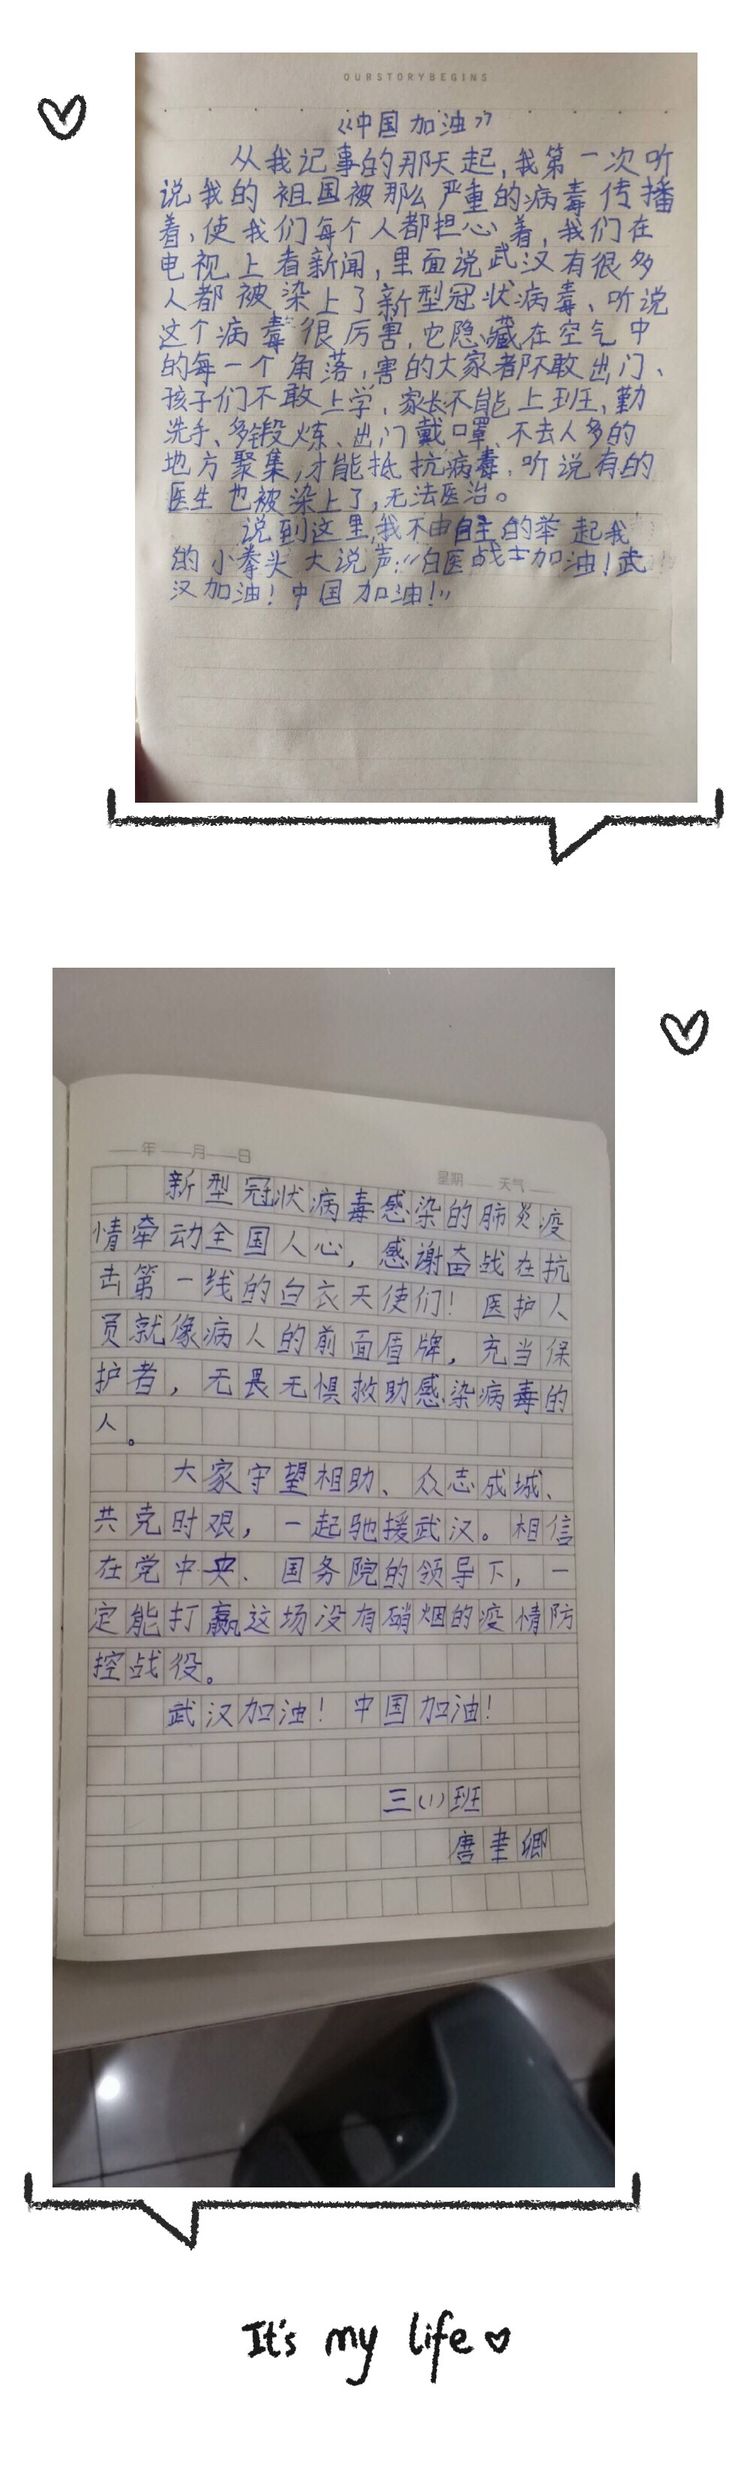 OURSTORYBEGINS
《中国加油》
从我记事的那天起,我第一次听
说我的祖国被那么严重的病毒传播
着,使我们每个人都担心着,我们在
电视上看新闻,里面说武汉有很多
人都被染上了新型冠状病毒、听说
这个病毒很厉害,它隐藏在空气中
的每一个角落,害的大家都不敢出门、
孩子们不敢上学,家长不能上班,勤
洗手、多锻炼、出门戴口罩、不去人多的
地方聚集,才能抵抗病毒,听说有的
医生也被染上了,无法医治。
说到这里,我不由自主的举起我
的小拳头大说声:“白医战士加油!武
汉加油!中国加油!”
年 月 日
星期 天气
新型冠状病毒感染的肺炎疫
情牵动全国人心,感谢奋战在抗
击第一线的白衣天使们!医护人
员就像病人的前面盾牌,充当保
护者,无畏无惧救助感染病毒的
人。
大家守望相助、众志成城、
共克时艰,一起驰援武汉。相信
在党中央、国务院的领导下,一
定能打赢这场没有硝烟的疫情防
控战役。
武汉加油!中国加油!
三(1)班
唐聿卿
It's my life